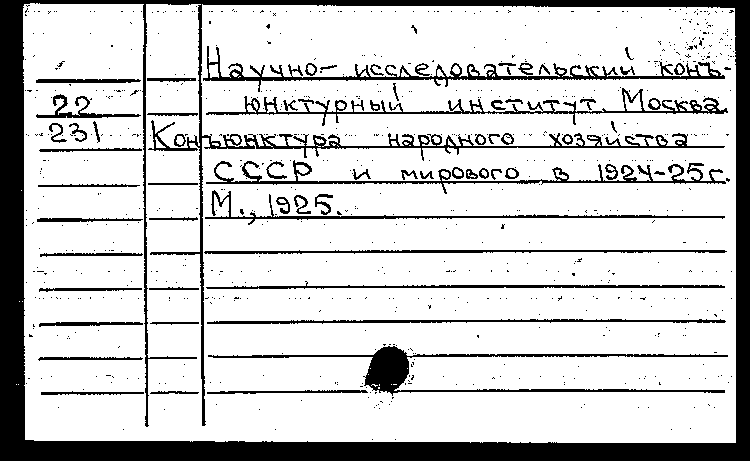 Научно- исследовательский конъ-
22 юнктурный институт. Москва.
231 Конъюнктура народного хозяйства
СССР и мирового в 1924-25 г.
М., 1925.